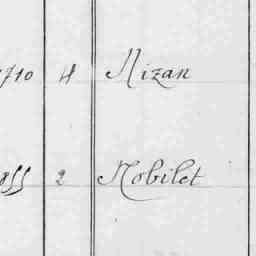 710 4 Nizan
855 2 Nobilet